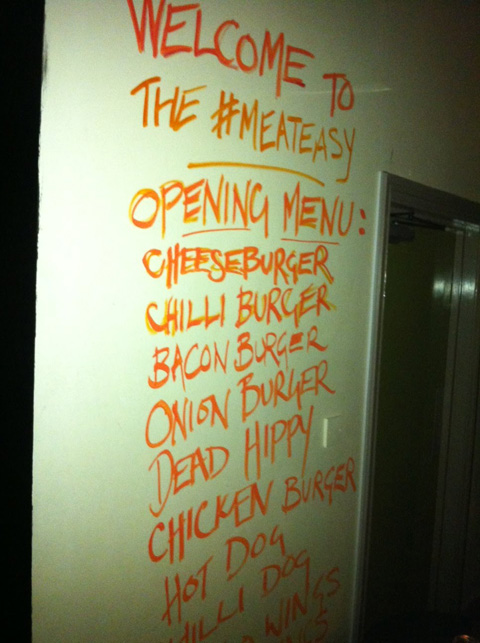 WELCOME TO
THE #MEATEASY
OPENING MENU:
CHEESEBURGER
CHILLI BURGER
BACON BURGER
ONION BURGER
DEAD HIPPY
CHICKEN BURGER
HOT DOG
CHILLI DOG
WINGS